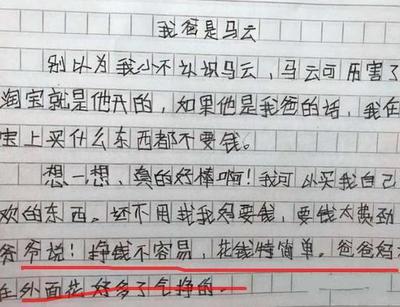 我爸是马云
别以为我小不认识马云，马云可历害了
淘宝就是他开的，如果他是我爸的话，我在
宝上买什么东西都不要钱。
想一想，真的好棒啊！我可以买我自己
欢的东西。还不用我找妈要钱，要钱太费劲
爷爷说！挣钱不容易，花钱特简单。爸爸妈
在外面花好多了气挣的。